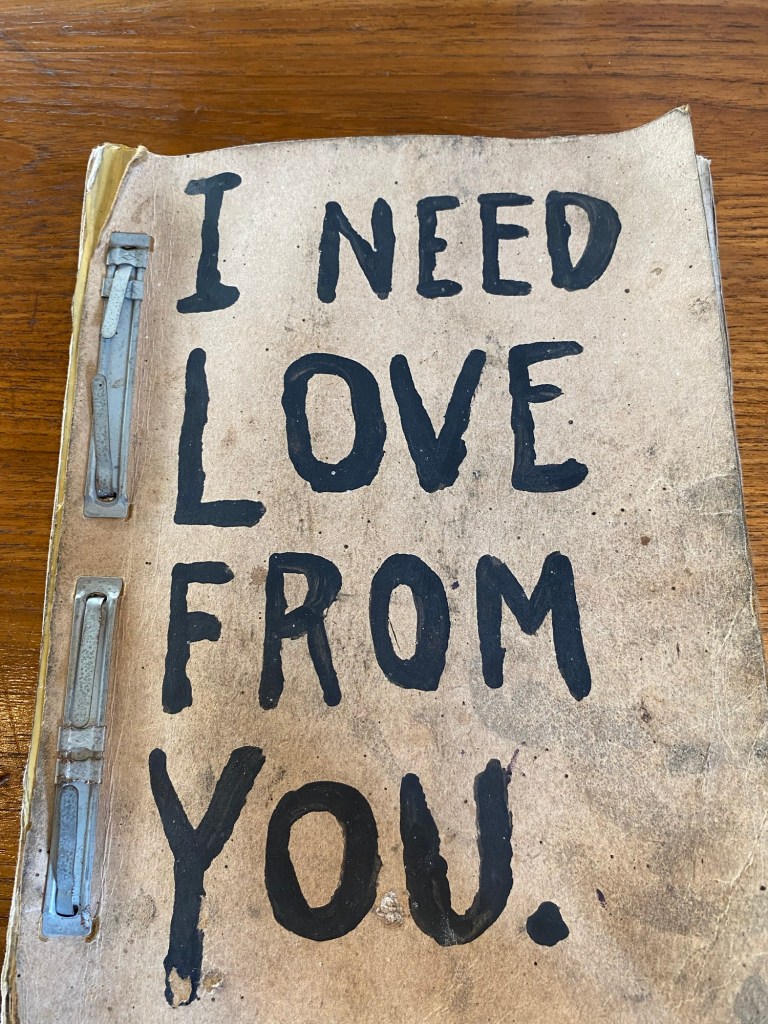 I NEED
LOVE
FROM
YOU.